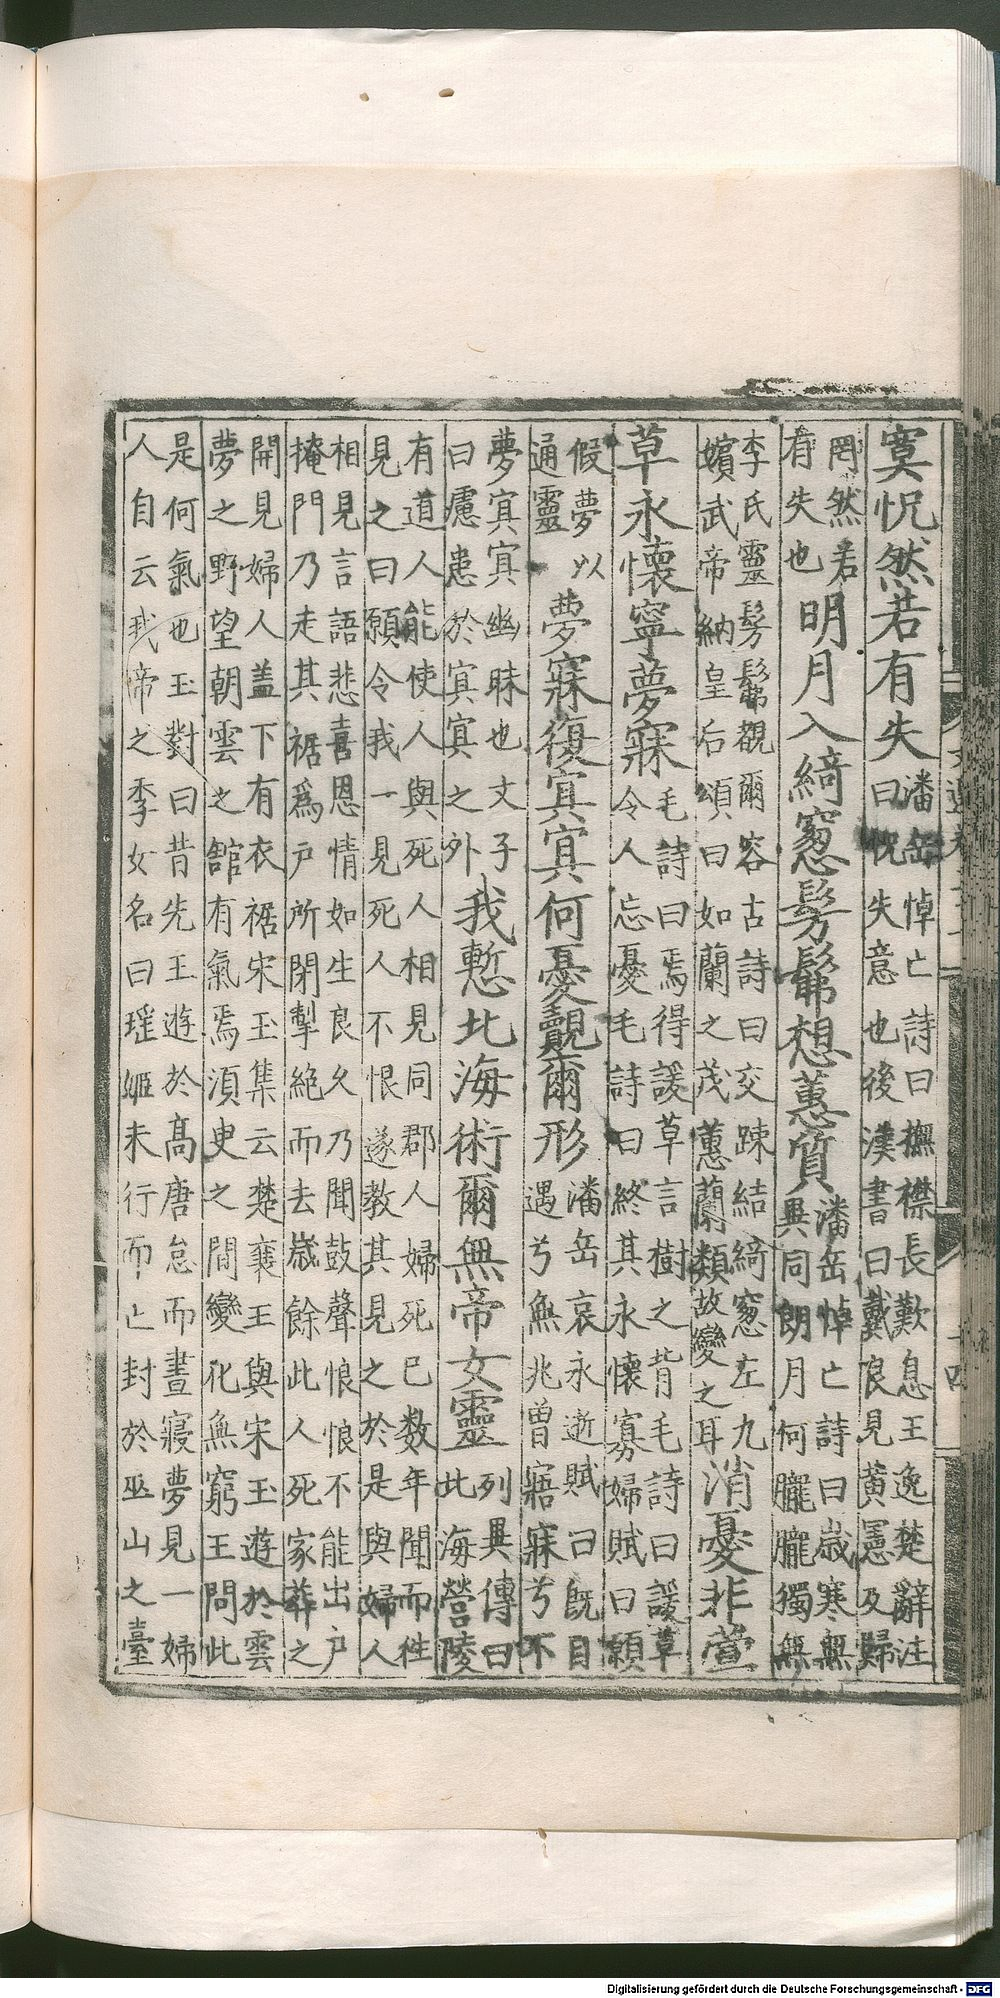 寞怳然若有失
潘岳悼亡詩曰撫襟長歎息王逸楚辭注
曰怳失意也後漢書曰戴良見黄憲及歸
罔然若
有失也
明月入綺窓髣髴想蕙質
潘岳悼亡詩曰歲寒無
異同朗月何朧朧獨無
李氏靈髣髴觀爾容古詩曰交踈結綺窓左九
嬪武帝納皇后頌曰如蘭之茂蕙蘭類故變之耳
消憂非萱
草永懷寧夢寐
毛詩曰焉得諼草言樹之背毛詩曰諼草
令人忘憂毛詩曰終其永懷寡婦賦曰願
假夢以
通靈
夢寐復㝠㝠何憂覿爾形
潘岳哀永逝賦曰既目
遇兮無兆曾寤寐兮不
夢㝠㝠幽昧也文子
曰慮患於㝠㝠之外
我慙北海術爾無帝女靈
列異傳曰
此海營陵
有道人能使人與死人相見同郡人婦死已数年聞而徃
見之曰願令我一見死人不恨遂教其見之於是與婦人
相見言語悲喜恩情如生良久乃聞鼓聲悢悢不能出户
掩門乃走其裾爲户所閉掣絶而去歲餘此人死家葬之
開見婦人盖下有衣裾宋玉集云楚襄王與宋玉遊於雲
夢之野望朝雲之舘有氣焉湏臾之間變化無窮王問此
是何氣也玉對曰昔先王遊於高唐怠而晝寢夢見一婦
人自云我帝之季女名曰瑤姬未行而亡封於巫山之臺
Digitalisierung gefördert durch die Deutsche Forschungsgemeinschaft - DFG